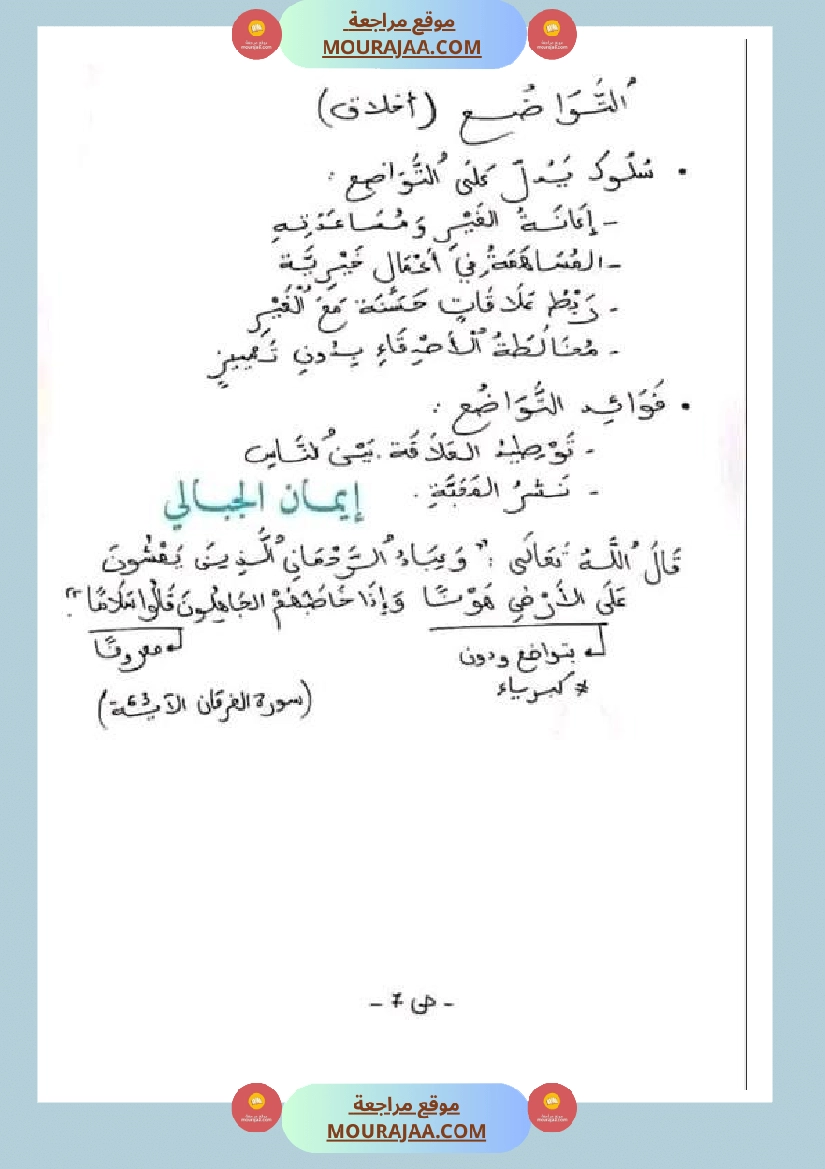 موقع مراجعة
MOURAJAA.COM
اُلتَّوَاضُع (أخلاق)
• سُلُوك يَدُلّ عَلَى اُلتَّوَاضِع :
- إِعَانَةُ الغَيْرِ وَمُسَاعَدَتِهِ
- المُسَاهَمَةُ فِي أَعْمَالٍ خَيْرِيَّة
- رَبْطُ عَلَاقَاتٍ حَسَنَة مَعَ اُلْغَيْرِ
- مُخَالَطَةُ اُلْأَصْدِقَاءِ بِدُونِ تَمْيِيزٍ
• فَوَائِد التَّوَاضُع :
- تَوْطِيدُ العَلَاقَة بَيْنَ اُلنَّاسِ
- نَشْرُ المَحَبَّةِ .
إيمان الجبالي
قَالَ اُللَّهُ تَعَالَى : " وَعِبَادُ اُلرَّحْمَانِ اُلَّذِينَ يَمْشُونَ
عَلَى الأَرْضِ هَوْنًا وَإِذَا خَاطَبَهُمْ الجَاهِلُونَ قَالُوا سَلَامًا "
بتواضع ودون معروفًا
* كبرياء
(سورة الفرقان الآية 63)
- ص 7 -
موقع مراجعة
MOURAJAA.COM